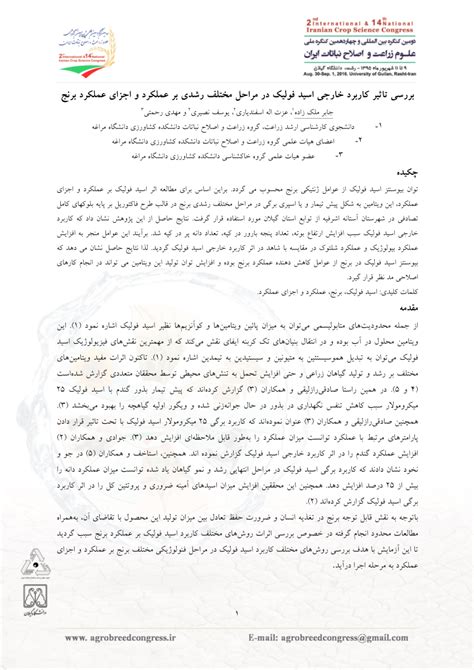 2nd International & 14th National
Iranian Crop Science Congress
دومین کنگره بین المللی و چهاردهمین کنگره ملی
علوم زراعت و اصلاح نباتات ایران
۹ تا ۱۱ شهریور ماه ۱۳۹۵ - رشت، دانشگاه گیلان
Aug. 30-Sep. 1, 2016, University of Guilan, Rasht-Iran
2nd International & 14th National
Iranian Crop Science Congress
بررسی تاثیر کاربرد خارجی اسید فولیک در مراحل مختلف رشدی بر عملکرد و اجزای عملکرد برنج
جابر ملک زاده۱، عزت اله اسفندیاری۲، یوسف نصیری۲ و مهدی رحمتی۳
۱- دانشجوی کارشناسی ارشد زراعت، گروه زراعت و اصلاح نباتات دانشکده کشاورزی دانشگاه مراغه
۲- اعضای هیات علمی گروه زراعت و اصلاح نباتات دانشکده کشاورزی دانشگاه مراغه
۳- عضو هیات علمی گروه خاکشناسی دانشکده کشاورزی دانشگاه مراغه
چکیده
توان بیوسنتز اسید فولیک از عوامل ژنتیکی برنج محسوب می گردد. براین اساس برای مطالعه اثر اسید فولیک بر عملکرد و اجزای
عملکرد، این ویتامین به شکل پیش تیمار و یا اسپری برگی در مراحل مختلف رشدی برنج در قالب طرح فاکتوریل بر پایه بلوکهای کامل
تصادفی در شهرستان آستانه اشرفیه از توابع استان گیلان مورد استفاده قرار گرفت. نتایج حاصل از این پژوهش نشان داد که کاربرد
اسید فولیک سبب افزایش ارتفاع بوته، تعداد پنجه بارور در کپه، تعداد دانه پر در کپه شد. برآیند این عوامل منجر به افزایش
عملکرد بیولوژیک و عملکرد شلتوک در مقایسه با شاهد در اثر کاربرد خارجی اسید فولیک گردید. لذا نتایج حاصل نشان می دهد که
بیوسنتز اسید فولیک در برنج از عوامل کاهش دهنده عملکرد برنج بوده و افزایش توان تولید این ویتامین می تواند در انجام کارهای
اصلاحی مد نظر قرار گیرد.
کلمات کلیدی: اسید فولیک، برنج، عملکرد و اجزای عملکرد.
مقدمه
از جمله محدودیت‌های متابولیسمی می‌توان به میزان پائین ویتامین‌ها و کوآنزیم‌ها نظیر اسید فولیک اشاره نمود (۱). این
ویتامین محلول در آب بوده و در انتقال بنیان‌های تک کربنه ایفای نقش می‌کند که از مهمترین نقش‌های فیزیولوژیک اسید
فولیک می‌توان به تبدیل هموسیستئین به متیونین و سیستیدین به تیمدین اشاره نمود (۱). تاکنون اثرات مفید ویتامین‌های
مختلف بر رشد و تولید گیاهان زراعی و حتی افزایش تحمل به تنش‌های محیطی توسط محققان متعددی گزارش شده‌است
(۴ و ۵). در همین راستا صادقی‌رازلیقی و همکاران (۳) گزارش کرده‌اند که پیش تیمار بذور گندم با اسید فولیک ۲۵
میکرومولار سبب کاهش تنفس نگهداری در بذور در حال جوانه‌زنی شده و ویگور اولیه گیاهچه را بهبود می‌بخشد (۳).
همچنین صادقی‌رازلیقی و همکاران (۳) عنوان نموده‌اند که کاربرد برگی ۲۵ میکرومولار اسید فولیک با تحت تاثیر قرار دادن
پارامترهای مرتبط با عملکرد توانست میزان عملکرد را به‌طور قابل ملاحظه‌ای افزایش دهد (۳). جوادی و همکاران (۲)
افزایش عملکرد گندم را در اثر کاربرد خارجی اسید فولیک گزارش نموده اند. همچنین، استاخف و همکاران (۵) در جو و
نخود نشان دادند که کاربرد برگی اسید فولیک در مراحل انتهایی رشد و نمو گیاهان یاد شده توانست میزان عملکرد دانه را
بیش از ۲۵ درصد افزایش دهد. همچنین این محققین افزایش میزان اسیدهای آمینه ضروری و پروتئین کل را در اثر کاربرد
اسید فولیک گزارش کرده‌اند (۲).
باتوجه به نقش قابل توجه برنج در تغذیه انسان و ضرورت حفظ تعادل بین میزان تولید این محصول با تقاضای آن، به‌همراه
مطالعات محدود انجام گرفته در خصوص بررسی اثرات روش‌های مختلف کاربرد اسید فولیک بر عملکرد برنج سبب گردید
تا این آزمایش با هدف بررسی روش‌های مختلف کاربرد اسید فولیک در مراحل فنولوژیکی مختلف برنج بر عملکرد و اجزای
عملکرد به مرحله اجرا درآید.
۱
www. agrobreedcongress.ir
E-mail: agrobreedcongress@gmail.com